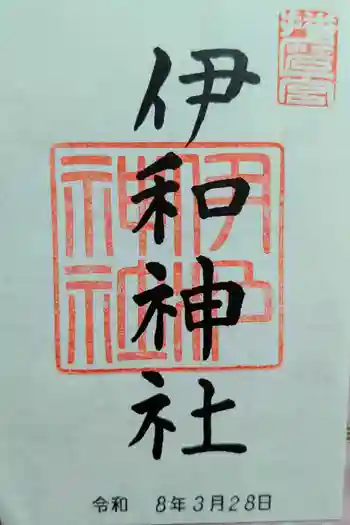 播磨一宮
伊和神社
伊和神社
令和 8年3月28日